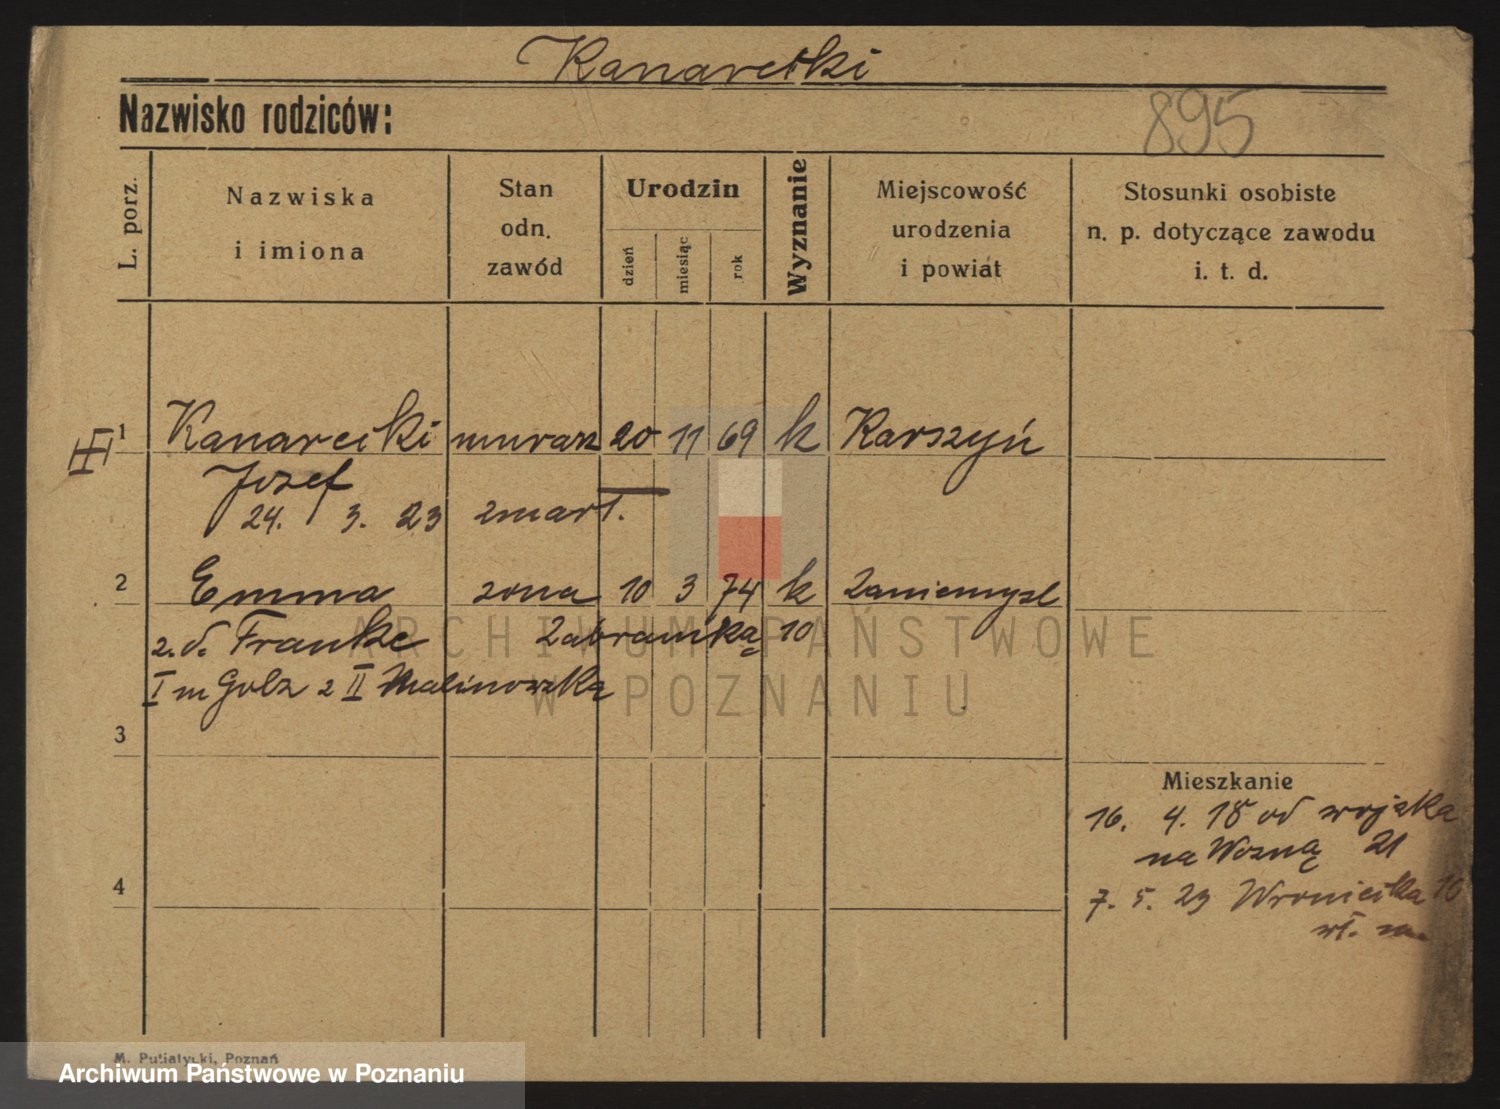 Kanarecki
Nazwisko rodziców:
895
L. porz.
Nazwiska
i imiona
Stan
odn.
zawód
Urodzin
dzień
miesiąc
rok
Wyznanie
Miejscowość
urodzenia
i powiat
Stosunki osobiste
n. p. dotyczące zawodu
i. t. d.
1 Kanarecki murarz 20 11 69 k Karszyń
Jozef
24. 3. 23 zmarł.
2 Emma zona 10 3 74 k Zaniemysl
z. d. Franke Zabramką 10
I m Golz z II Malinowską
3
4
Mieszkanie
16. 4. 18 od wojska
na Wozną 21
7. 5. 23 Wroniecka 10
wł.
ARCHIWUM PAŃSTWOWE
W POZNANIU
M. Putiatycki, Poznań
Archiwum Państwowe w Poznaniu